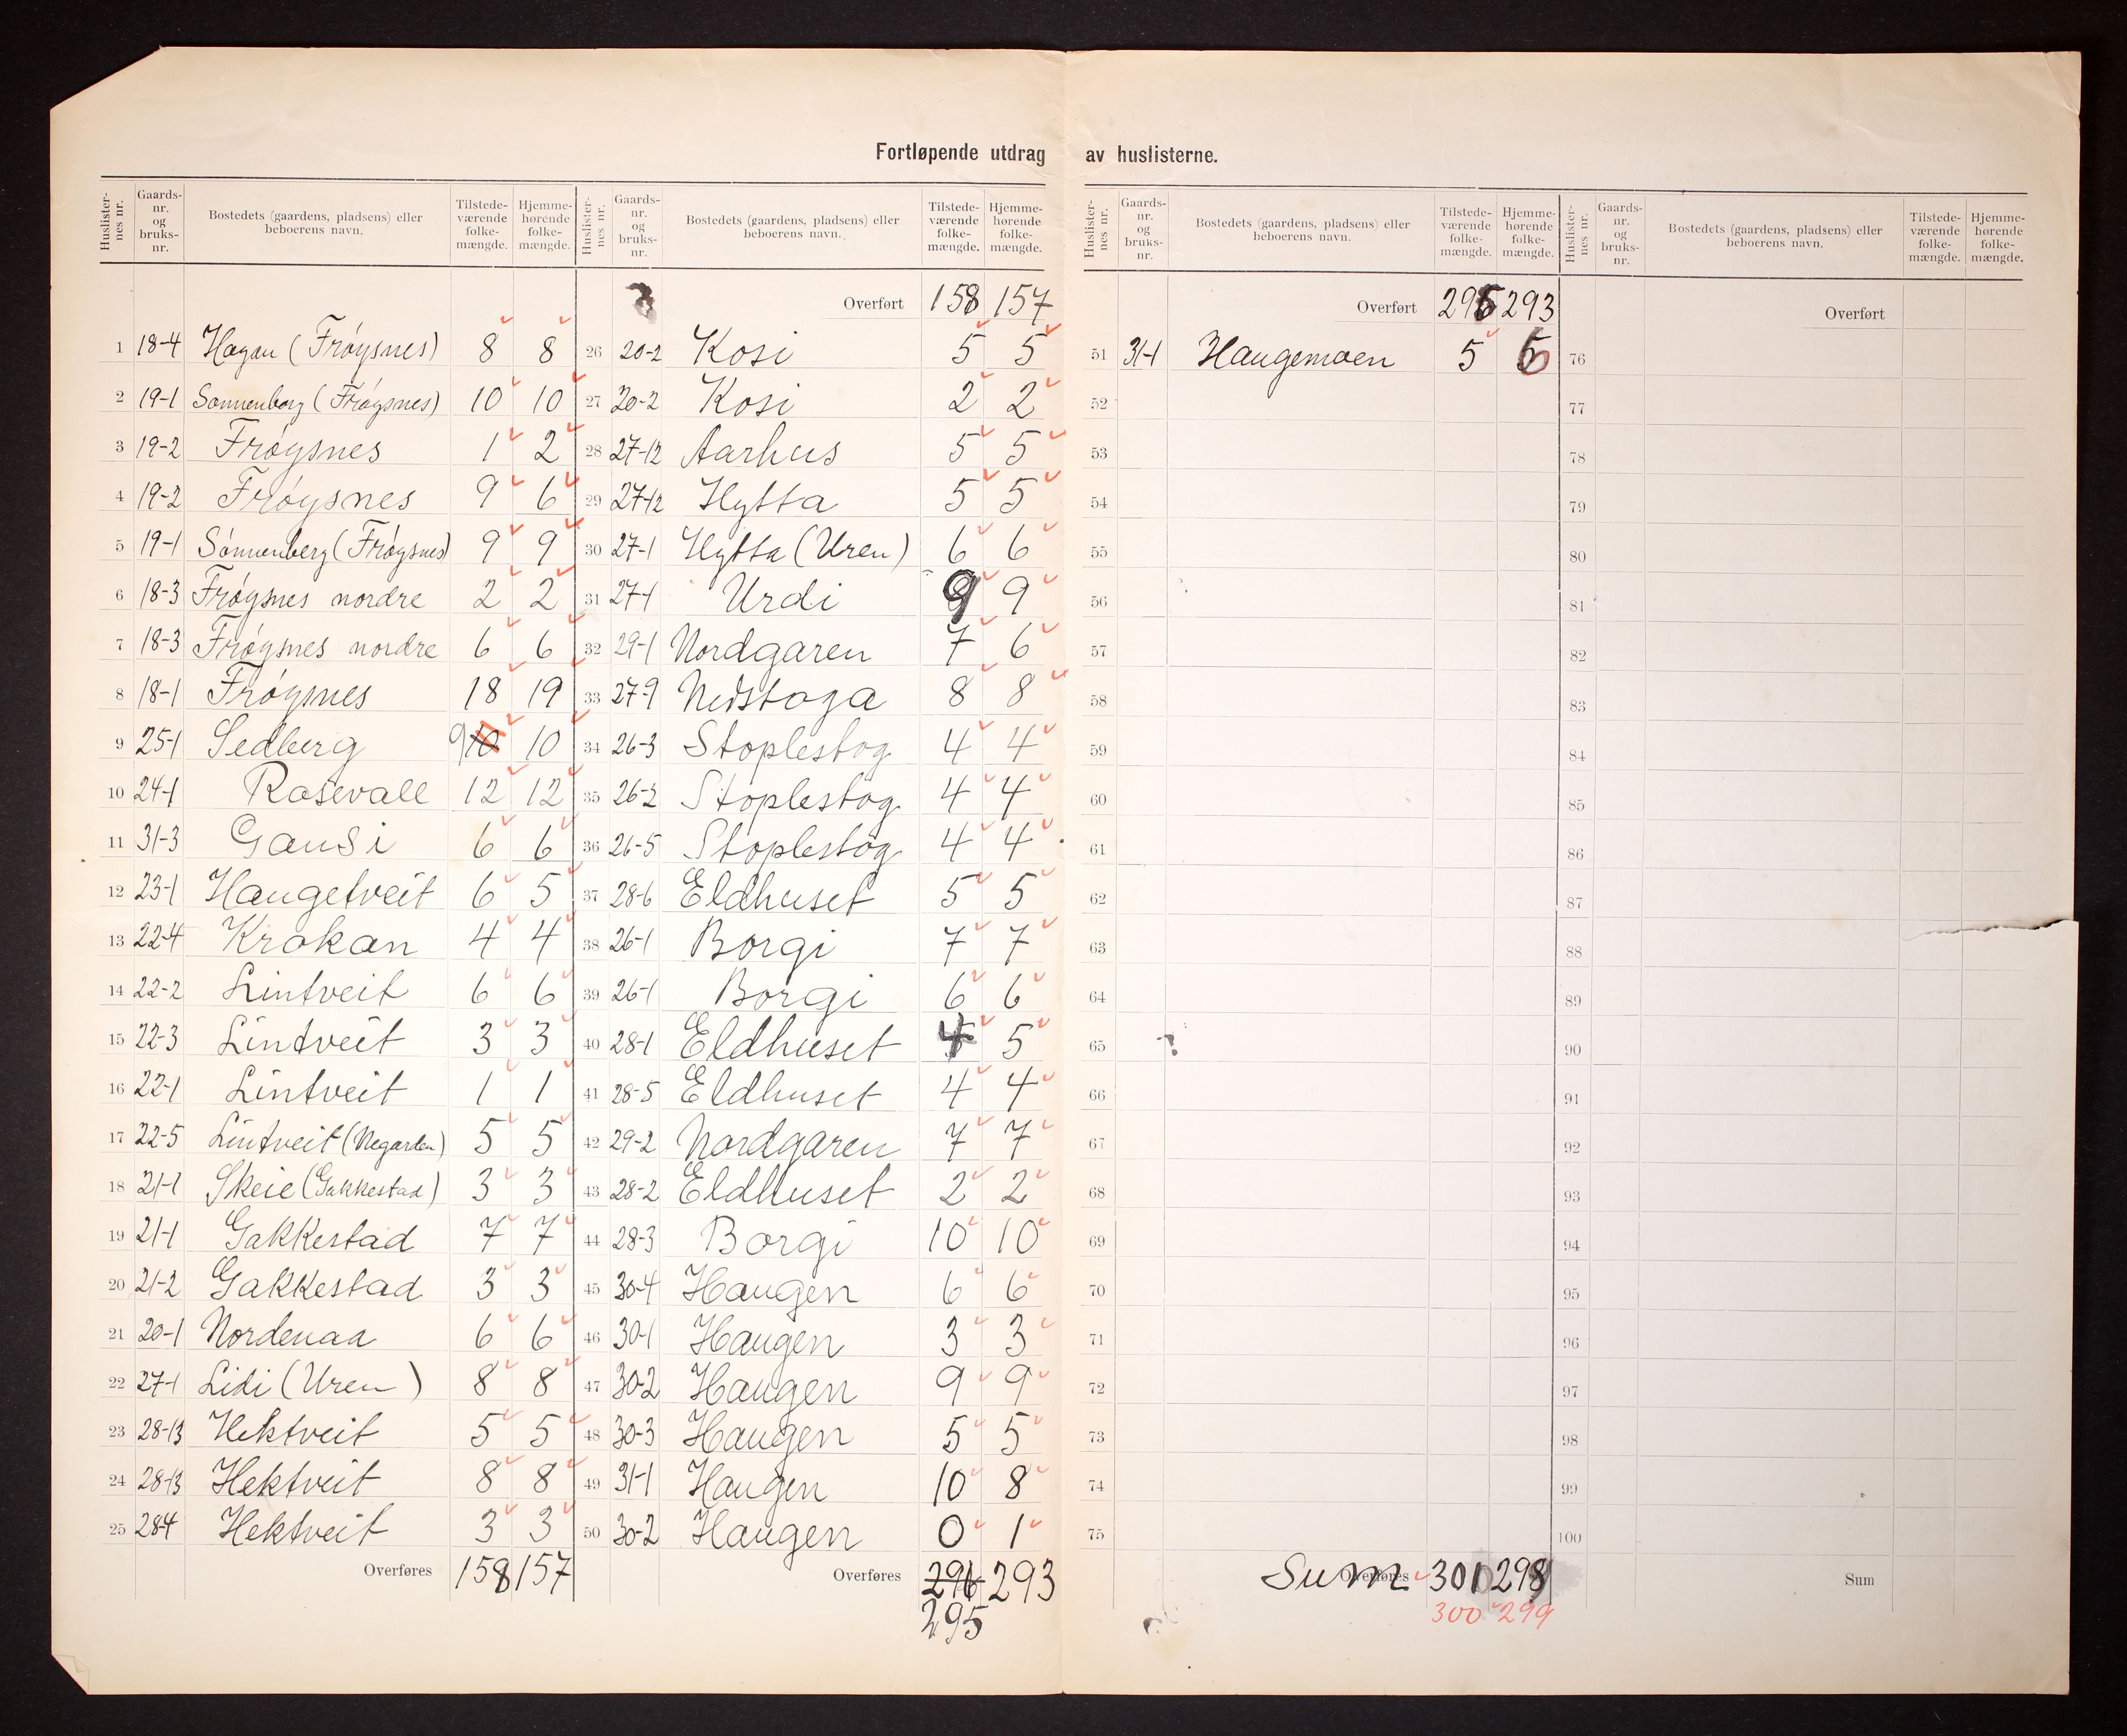 Fortløpende utdrag av huslisterne.
Huslister-nes nr. Gaards-nr. og bruks-nr. Bostedets (gaardens, pladsens) eller beboerens navn. Tilstede-værende folke-mængde. Hjemme-hørende folke-mængde.
1 18-4 Hagan (Frøysnes) 8 8
2 19-1 Sønnenberg (Frøysnes) 10 10
3 19-2 Frøysnes 1 2
4 19-2 Frøysnes 9 6
5 19-1 Sønnenberg (Frøysnes) 9 9
6 18-3 Frøysnes nordre 2 2
7 18-3 Frøysnes nordre 6 6
8 18-1 Frøysnes 18 19
9 25-1 Sedberg 9 10 10
10 24-1 Rosevall 12 12
11 31-3 Gausi 6 6
12 23-1 Haugetveit 6 5
13 22-4 Krokan 4 4
14 22-2 Lintveit 6 6
15 22-3 Lintveit 3 3
16 22-1 Lintveit 1 1
17 22-5 Lintveit (Negarden) 5 5
18 21-1 Skeie (Gakkestad) 3 3
19 21-1 Gakkestad 7 7
20 21-2 Gakkestad 3 3
21 20-1 Nordenaa 6 6
22 27-1 Lidi (Uren) 8 8
23 28-13 Hektveit 5 5
24 28-13 Hektveit 8 8
25 28-4 Hektveit 3 3
Overføres 158 157
Huslister-nes nr. Gaards-nr. og bruks-nr. Bostedets (gaardens, pladsens) eller beboerens navn. Tilstede-værende folke-mængde. Hjemme-hørende folke-mængde.
Overført 158 157
26 20-2 Kosi 5 5
27 20-2 Kosi 2 2
28 27-12 Aarhus 5 5
29 27-12 Hytta 5 5
30 27-1 Hytta (Uren) 6 6
31 27-1 Urdi 9 9
32 29-1 Nordgaren 7 6
33 27-9 Nedstoga 8 8
34 26-3 Stoplestog 4 4
35 26-2 Stoplestog 4 4
36 26-5 Stoplestog 4 4
37 28-6 Eldhuset 5 5
38 26-1 Borgi 7 7
39 26-1 Borgi 6 6
40 28-1 Eldhuset 4 5
41 28-5 Eldhuset 4 4
42 29-2 Nordgaren 7 7
43 28-2 Eldhuset 2 2
44 28-3 Borgi 10 10
45 30-4 Haugen 6 6
46 30-1 Haugen 3 3
47 30-2 Haugen 9 9
48 30-3 Haugen 5 5
49 31-1 Haugen 10 8
50 30-2 Haugen 0 1
Overføres 296 293
295
Huslister-nes nr. Gaards-nr. og bruks-nr. Bostedets (gaardens, pladsens) eller beboerens navn. Tilstede-værende folke-mængde. Hjemme-hørende folke-mængde.
Overført 295 293
51 31-1 Haugemoen 5 6
52
53
54
55
56
57
58
59
60
61
62
63
64
65
66
67
68
69
70
71
72
73
74
75
Sum Overføres 301 298
300 299
Huslister-nes nr. Gaards-nr. og bruks-nr. Bostedets (gaardens, pladsens) eller beboerens navn. Tilstede-værende folke-mængde. Hjemme-hørende folke-mængde.
Overført
76
77
78
79
80
81
82
83
84
85
86
87
88
89
90
91
92
93
94
95
96
97
98
99
100
Sum